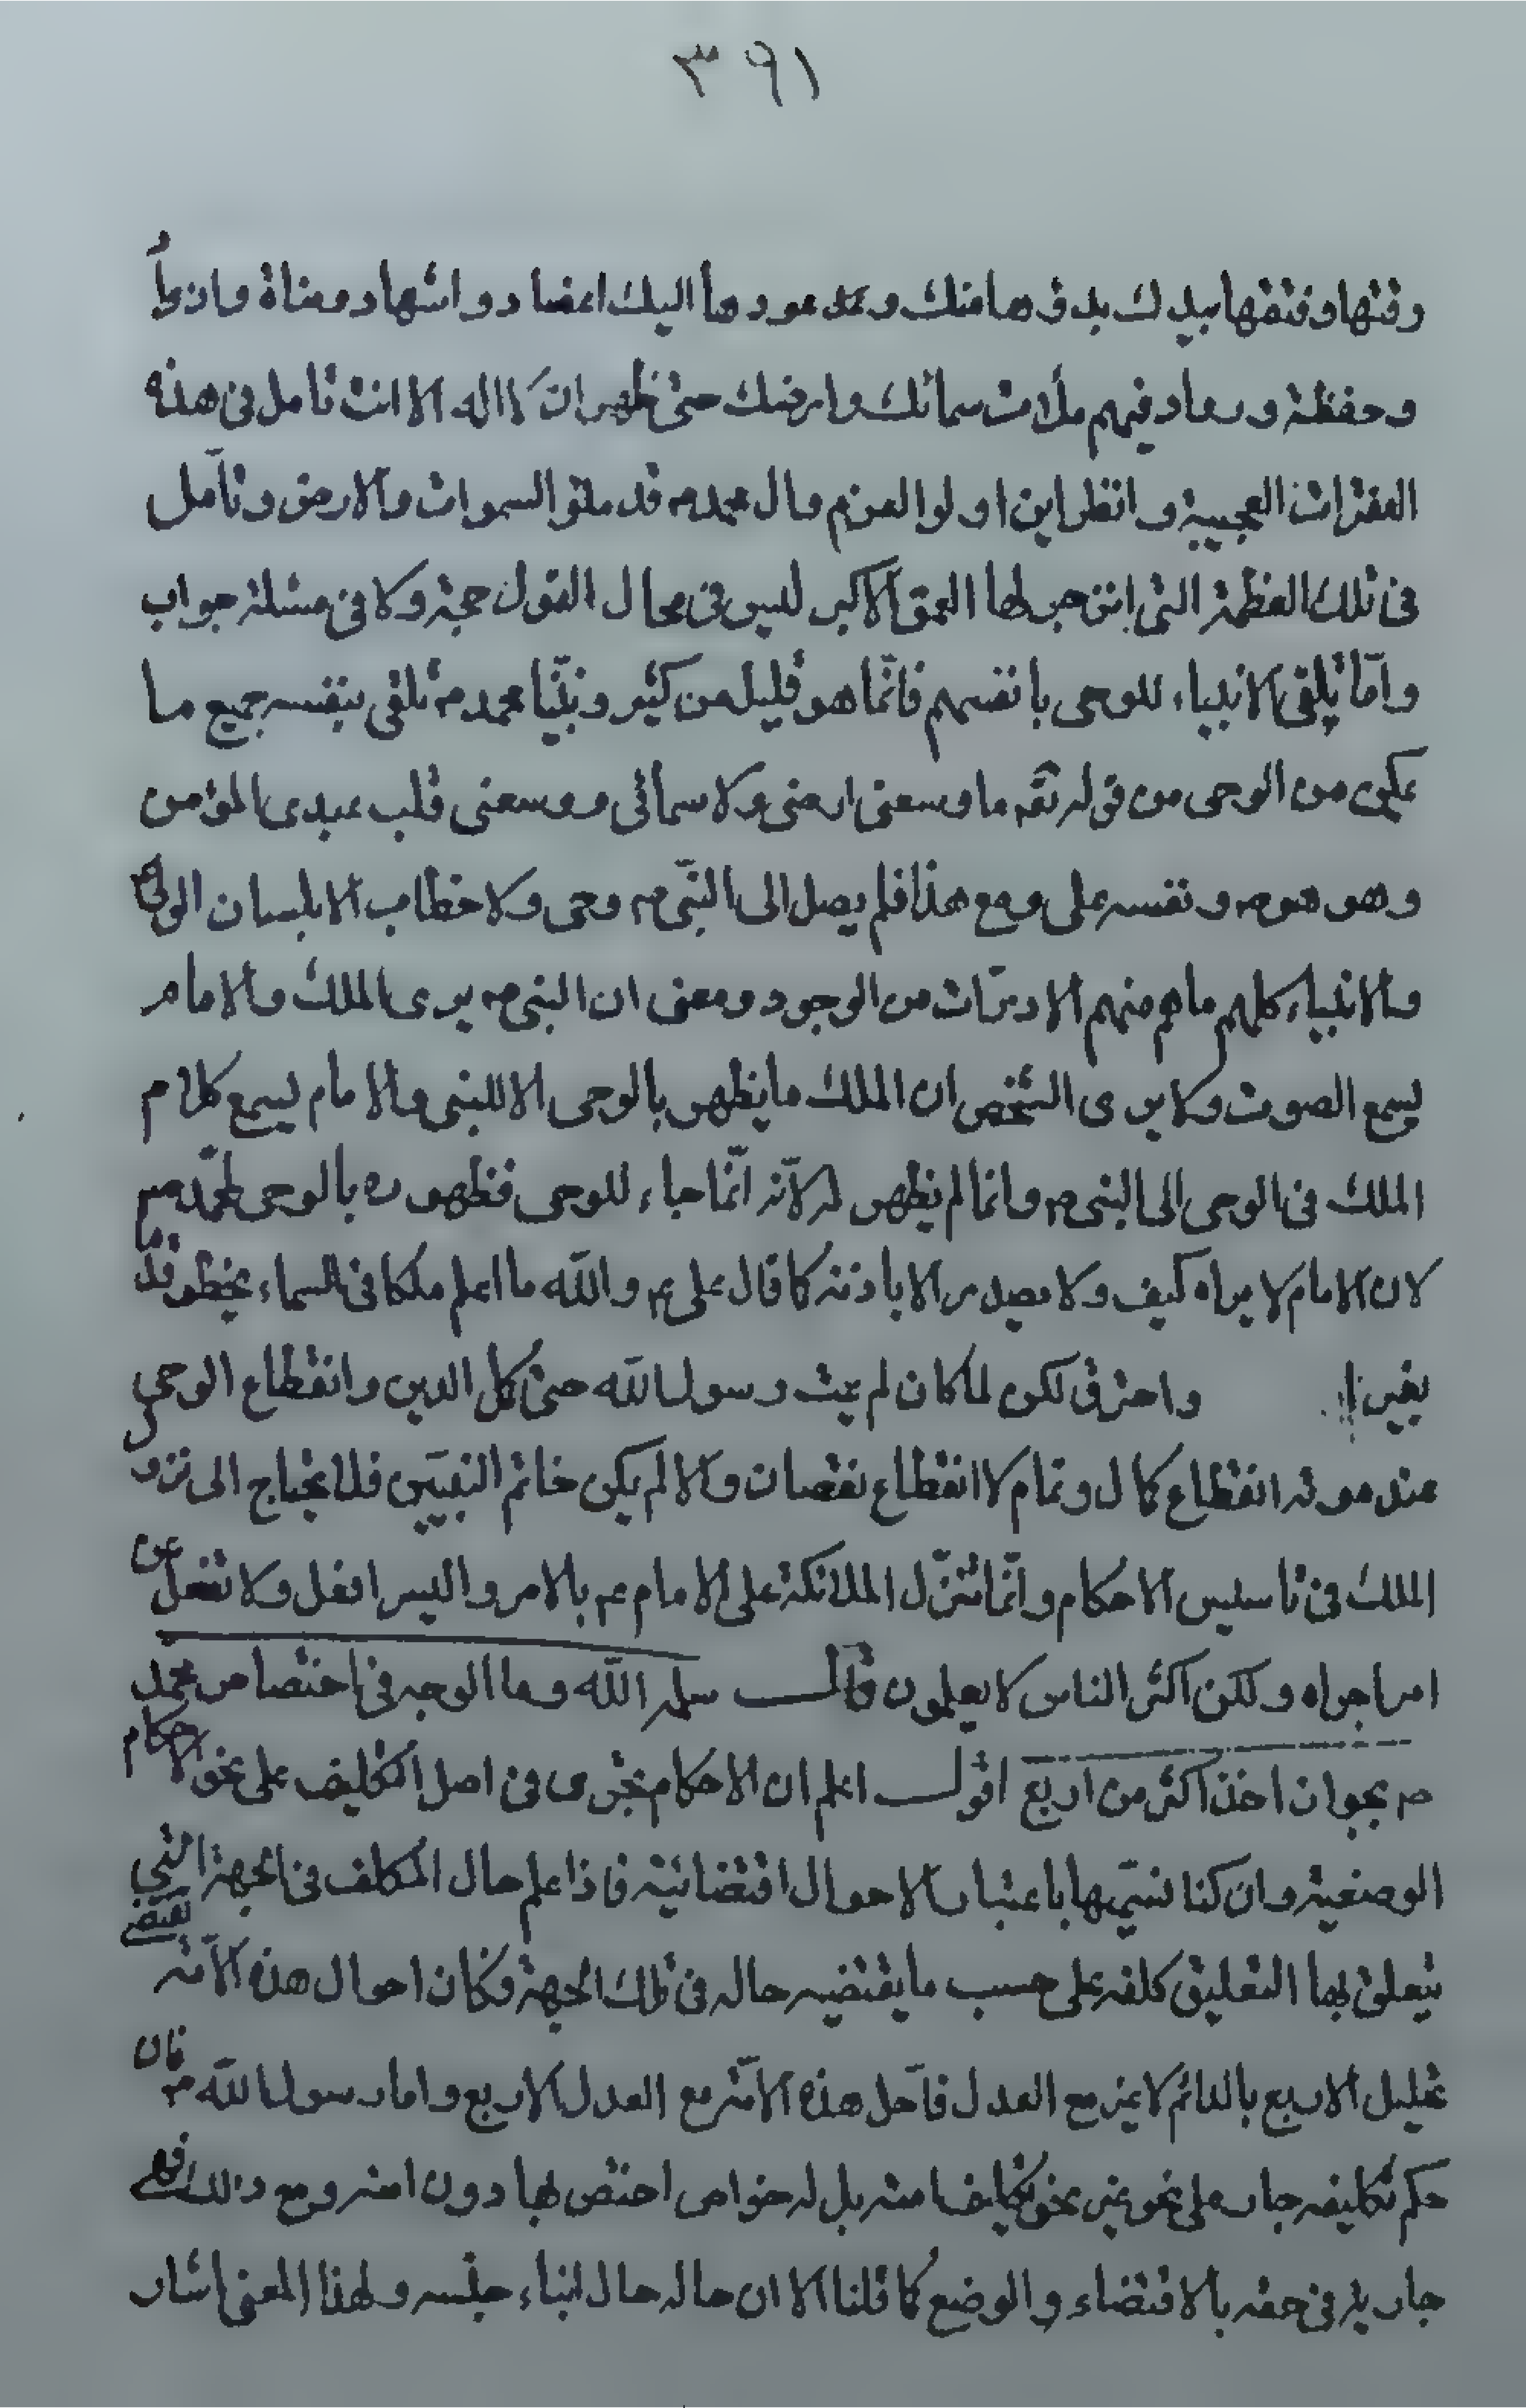 ٣٩١
رتقها وفتقها بيدك بدؤها منك وعودها اليك اعضاد واشهاد ومناة واذواد
وحفظة ورواد فبهم ملأت سمائك وارضك حتى ظهر ان لا اله الا انت تأمل فى هذه
الفقرات العجيبة وانظر اين اولوا العزم وال محمد ص قد ملئوا السموات والارض وتأمل
فى تلك العظمة التى انزجر لها العمق الاكبر ليس فى محال القول حجة ولا فى مسئلة جواب
وامّا تلقى الانبياء للوحى بانفسهم فانّما هو قليل من كثير ونبيّنا محمد ص تلقى بنفسه جميع ما
يمكن من الوحى من قوله تعه ما وسعنى ارضى ولا سمائى ووسعنى قلب عبدى المؤمن
وهو هو ص ونفسه على ومع هذا فلم يصل الى النبّى ص وحى ولا خطاب الا بلسان الولى
والانبياء كلهم ما هم منهم الا ذرّات من الوجود ومعنى ان النبى ص يرى الملك والامام
يسمع الصوت ولا يرى الشخص ان الملك ما يظهر بالوحى الا للنبى والامام يسمع كلام
الملك فى الوحى الى النبى ص وانما لم يظهر له لانّه انّما جاء للوحى فظهوره بالوحى لمحمّد ص
لان الامام لا يراه كيف ولا يصدر الا باذنه كما قال على ع والله ما اعلم ملكا فى السماء يخطو قدما
بغير واحترق لكن لما كان لم يمت رسول الله حتى كمل الدين وانقطاع الوحى
عند موته انقطاع كمال وتمام لا انقطاع نقصان والا لم يكن خاتم النبيّين فلا يحتاج الى نزول
الملك فى تاسيس الاحكام وانّما تتنزّل الملائكة على الامام ع بالامر واليسر افعل ولا تفعل عن
امر اجراه ولكن اكثر الناس لا يعلمون قال سلمه الله وما الوجه فى اختصاص محمد
ص بجواز اخذ اكثر من اربع اقول اعلم ان الاحكام تجرى فى اصل التكليف على نحو الاحكام
الوضعية وان كنا نسمّيها باعتبار الاحوال اقتضائية فاذا علم حال المكلف فى الجهة التى
يتعلق بها التعليق كلفه على حسب ما يقتضيه حاله فى تلك الجهة فكان احوال هذه الامّة تقتضى
تحليل الاربع بالدائم لا غير مع العدل فاحل هذه الامّة مع العدل الاربع واما رسول الله ص فان
حكم تكليفه جار على نحو غير نحو تكاليف امته بل له خواص اختص بها دون امته ومع ذلك فهى
جارية فى حقه بالاقتضاء والوضع كما قلنا الا ان حاله حال ابناء جنسه ولهذا المعنى اشار